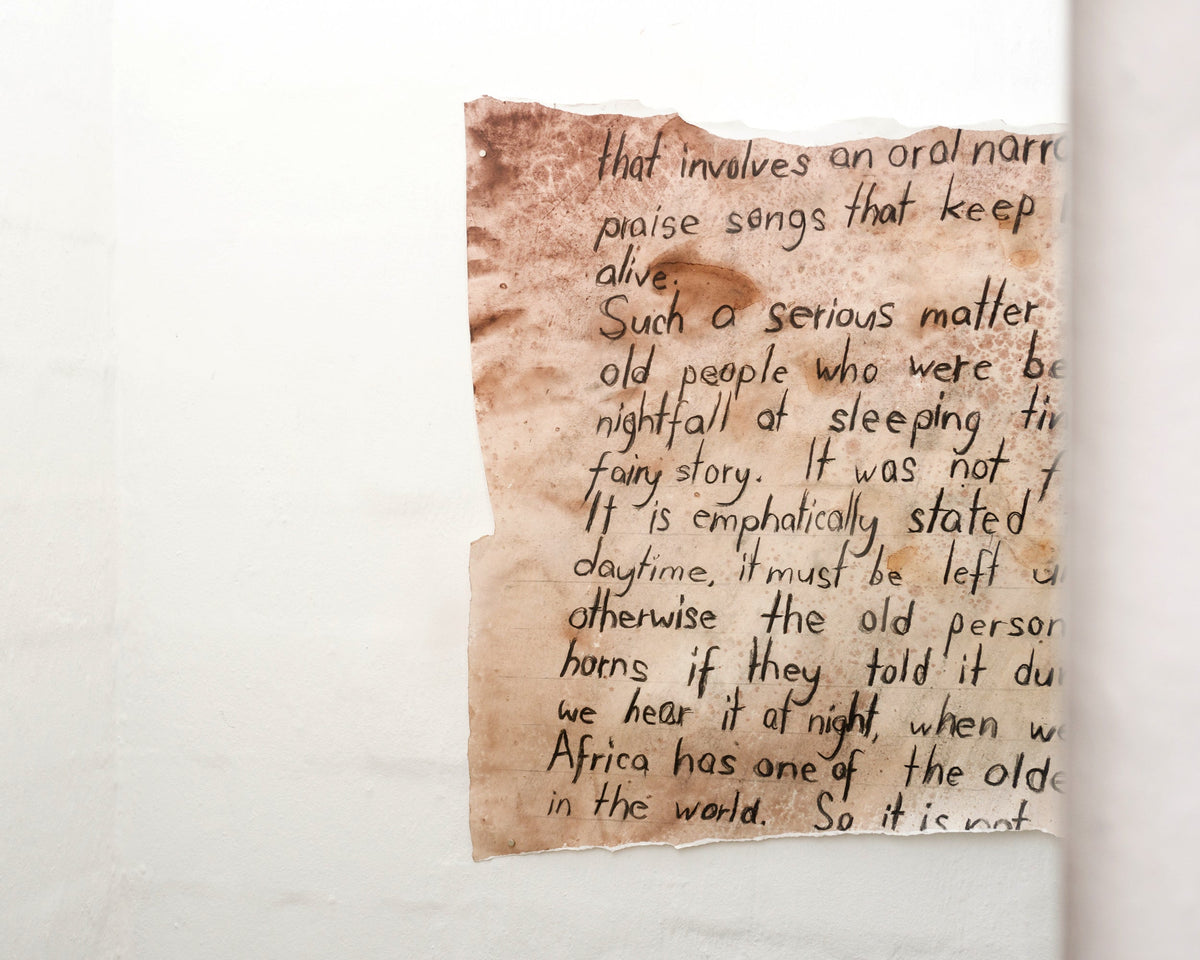 that involves an oral narra
praise songs that keep
alive.
Such a serious matter
old people who were be
nightfall at sleeping tim
fairy story. It was not f
It is emphatically stated
daytime, it must be left u
otherwise the old person
horns if they told it dur
we hear it at night, when we
Africa has one of the olde
in the world. So it is not